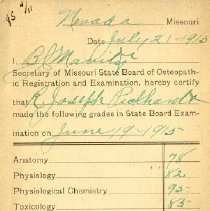 Nevada Missouri
Date July 21-1915
I,
Secretary of Missouri State Board of Osteopath-
ic Registration and Examination, hereby certify
that R. Joseph
made the following grades in State Board Exam-
ination on June 19-1915
Anatomy 78
Physiology 82
Physiological Chemistry 95
Toxicology 85